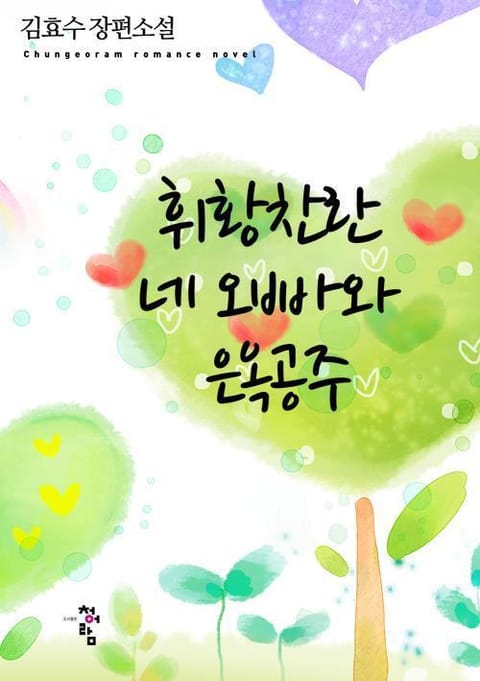 김효수 장편소설
Chungeoram romance novel
휘황찬란
네 오빠와
은옥공주
도서출판
청어람